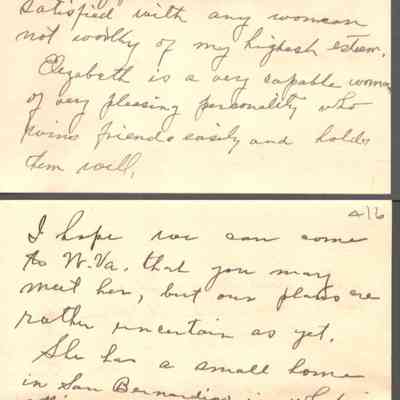 satisfied with any woman
not worthy of my highest esteem.
Elizabeth is a very capable woman
of very pleasing personality who
wins friends easily and holds
them well.
4/6
I hope we can come
to W.Va. that you may
meet her, but our plans are
rather uncertain as yet.
She has a small home
in San Bernardino in which